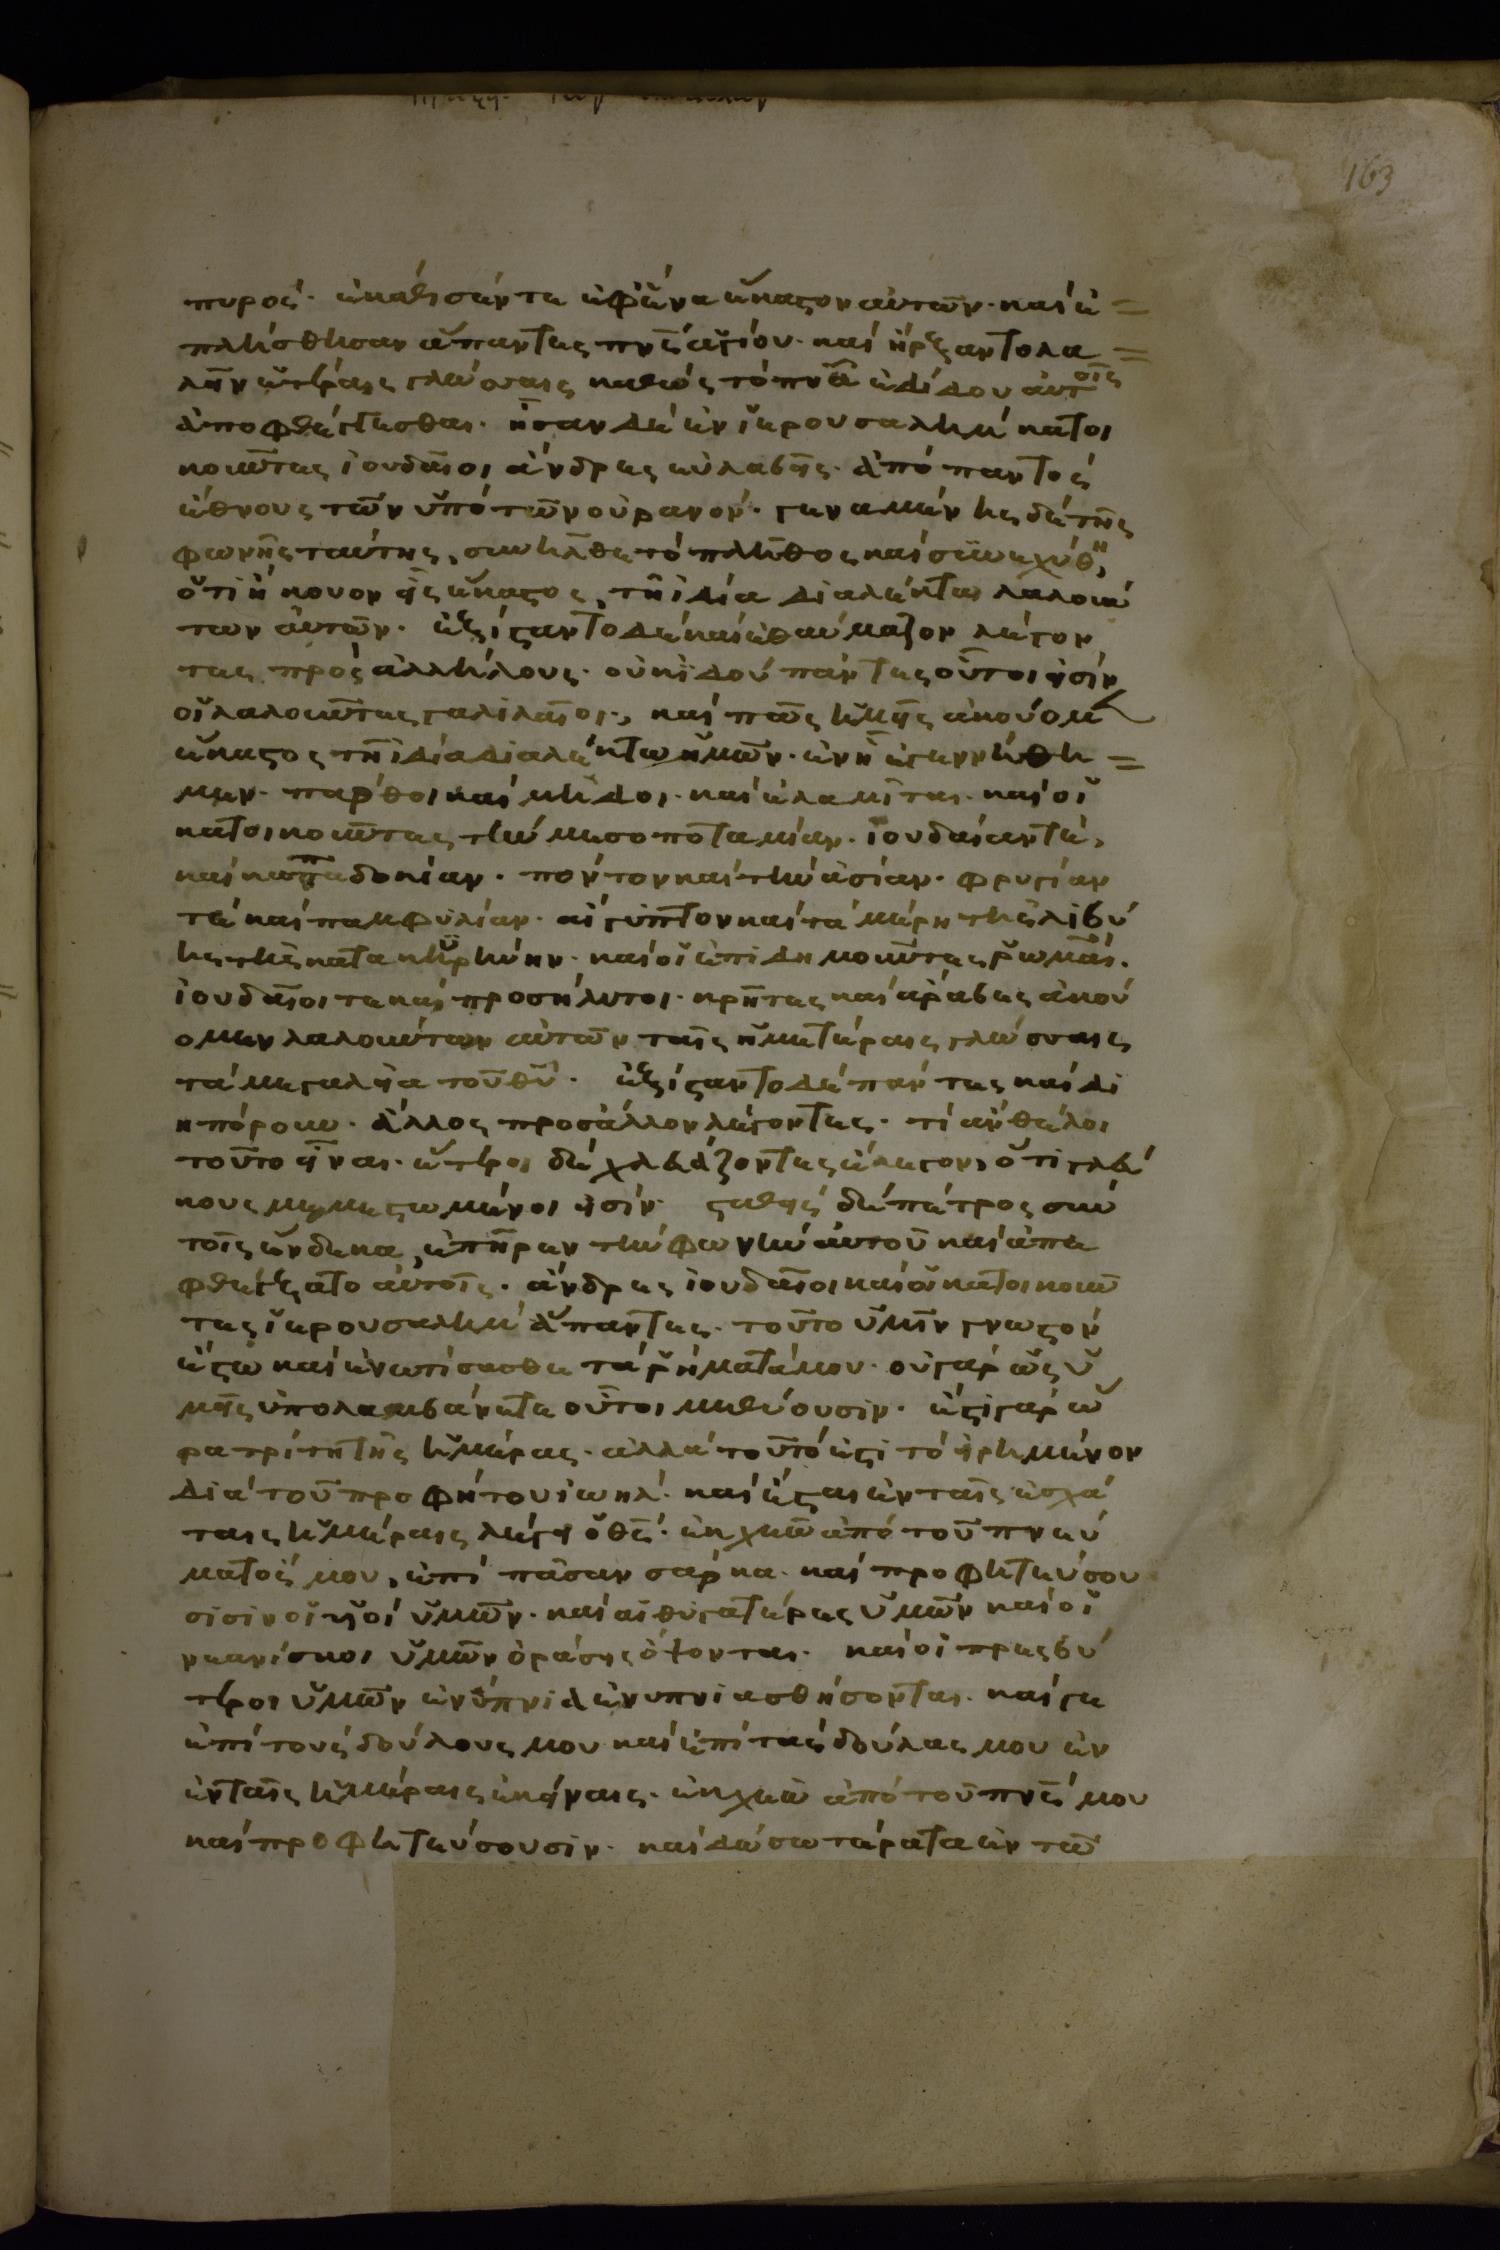 163
πυρός· ἐκάθισάν τε ἐφ' ἕνα ἕκαστον αὐτῶν· καὶ ἐ=
πλήσθησαν ἅπαντες πν̅ς ἁγίου· καὶ ἤρξαντο λα=
λεῖν ἑτέραις γλώσσαις καθὼς τὸ πν̅α ἐδίδου αὐτοῖς
ἀποφθέγγεσθαι· ἦσαν δὲ ἐν ἱερουσαλὴμ κατοι
κοῦντες ἰουδαῖοι ἄνδρες εὐλαβεῖς· ἀπὸ παντὸς
ἔθνους τῶν ὑπὸ τῶν οὐρανόν· γεναμένης δὲ τῆς
φωνῆς ταύτης, συνῆλθε τὸ πλῆθος καὶ συνεχύθη,
ὅτι ἤκουον εἷς ἕκαστος, τῇ ἰδία διαλέκτω λαλούν
των αὐτῶν· ἐξίσταντο δὲ καὶ ἐθαύμαζον λέγον
τες πρὸς ἀλλήλους· οὐκ ἰδοὺ πάντες οὗτοι εἰσὶν
οἱ λαλοῦντες γαλιλαῖοι·, καὶ πῶς ἡμεῖς ἀκούομεν
ἕκαστος τῇ ἰδία διαλέκτω ἡμῶν· ἐν ἧ ἐγεννήθη=
μεν· πάρθοι καὶ μῆδοι· καὶ ἐλαμῖται· καὶ οἱ
κατοικοῦντες τὴν μεσοποταμίαν· ἰουδαίαν τὲ,
καὶ καππαδοκίαν· πόντον καὶ τὴν ἀσίαν· φρυγίαν
τὲ καὶ παμφυλίαν· αἴγυπτον καὶ τὰ μέρη τῆς λιβύ
ης τῆς κατὰ κυρήνην· καὶ οἱ ἐπιδημοῦντες ῥωμαῖ·
ἰουδαῖοι τε καὶ προσήλυτοι· κρῆτες καὶ ἄραβες ἀκού
ομεν λαλούντων αὐτῶν ταῖς ἡμετέραις γλώσσαις
τὰ μεγαλεῖα τοῦ θ̅υ· ἐξίσταντο δὲ πάντες καὶ δι
ηπόρουν· ἄλλος προς ἄλλον λέγοντες· τί ἂν θέλοι
τοῦτο εἶναι· ἕτεροι δὲ χλευάζοντες ἔλεγον, ὅτι γλεύ
κους μεμεστωμένοι εἰσίν· σταθεὶς δὲ πέτρος σὺν
τοῖς ἕνδεκα, ἐπῆρεν τὴν φωνὴν αὐτοῦ καὶ ἀπε
φθέγξατο αὐτοῖς· ἄνδρες ἰουδαῖοι καὶ οἱ κατοικοῦν
τες ἱερουσαλὴμ ἅπαντες· τοῦτο ὑμῖν γνωστὸν
ἔστω καὶ ἐνωτίσασθε τὰ ῥήματά μου· οὐ γὰρ ὡς ὑ
μεῖς ὑπολαμβάνετε οὗτοι μεθύουσιν· ἔστι γὰρ ὥ
ρα τρίτη τῆς ἡμέρας· ἀλλὰ τοῦτό ἐστι τὸ εἰρημένον
διὰ τοῦ προφήτου ἰωήλ· καὶ ἔσται ἐν ταῖς ἐσχά
ταις ἡμέραις λέγει ὁ θ̅ς· ἐκχεῶ ἀπὸ τοῦ πνεύ
ματός μου, ἐπὶ πᾶσαν σάρκα· καὶ προφητεύσου
σισιν οἱ υἱοὶ ὑμῶν· καὶ αἱ θυγατέρες ὑμῶν καὶ οἱ
νεανίσκοι ὑμῶν ὁράσεις ὄψονται· καὶ οἱ πρεσβύ
τεροι ὑμῶν ἐνύπνια ἐνυπνιασθήσονται· καί γε
ἐπὶ τοὺς δούλους μου καὶ ἐπὶ τὰς δούλας μου ἐν
ἐν ταῖς ἡμέραις ἐκείναις· ἐκχεῶ ἀπὸ τοῦ πν̅ς μου
καὶ προφητεύσουσιν· καὶ δώσω τέρατα ἐν τῶ